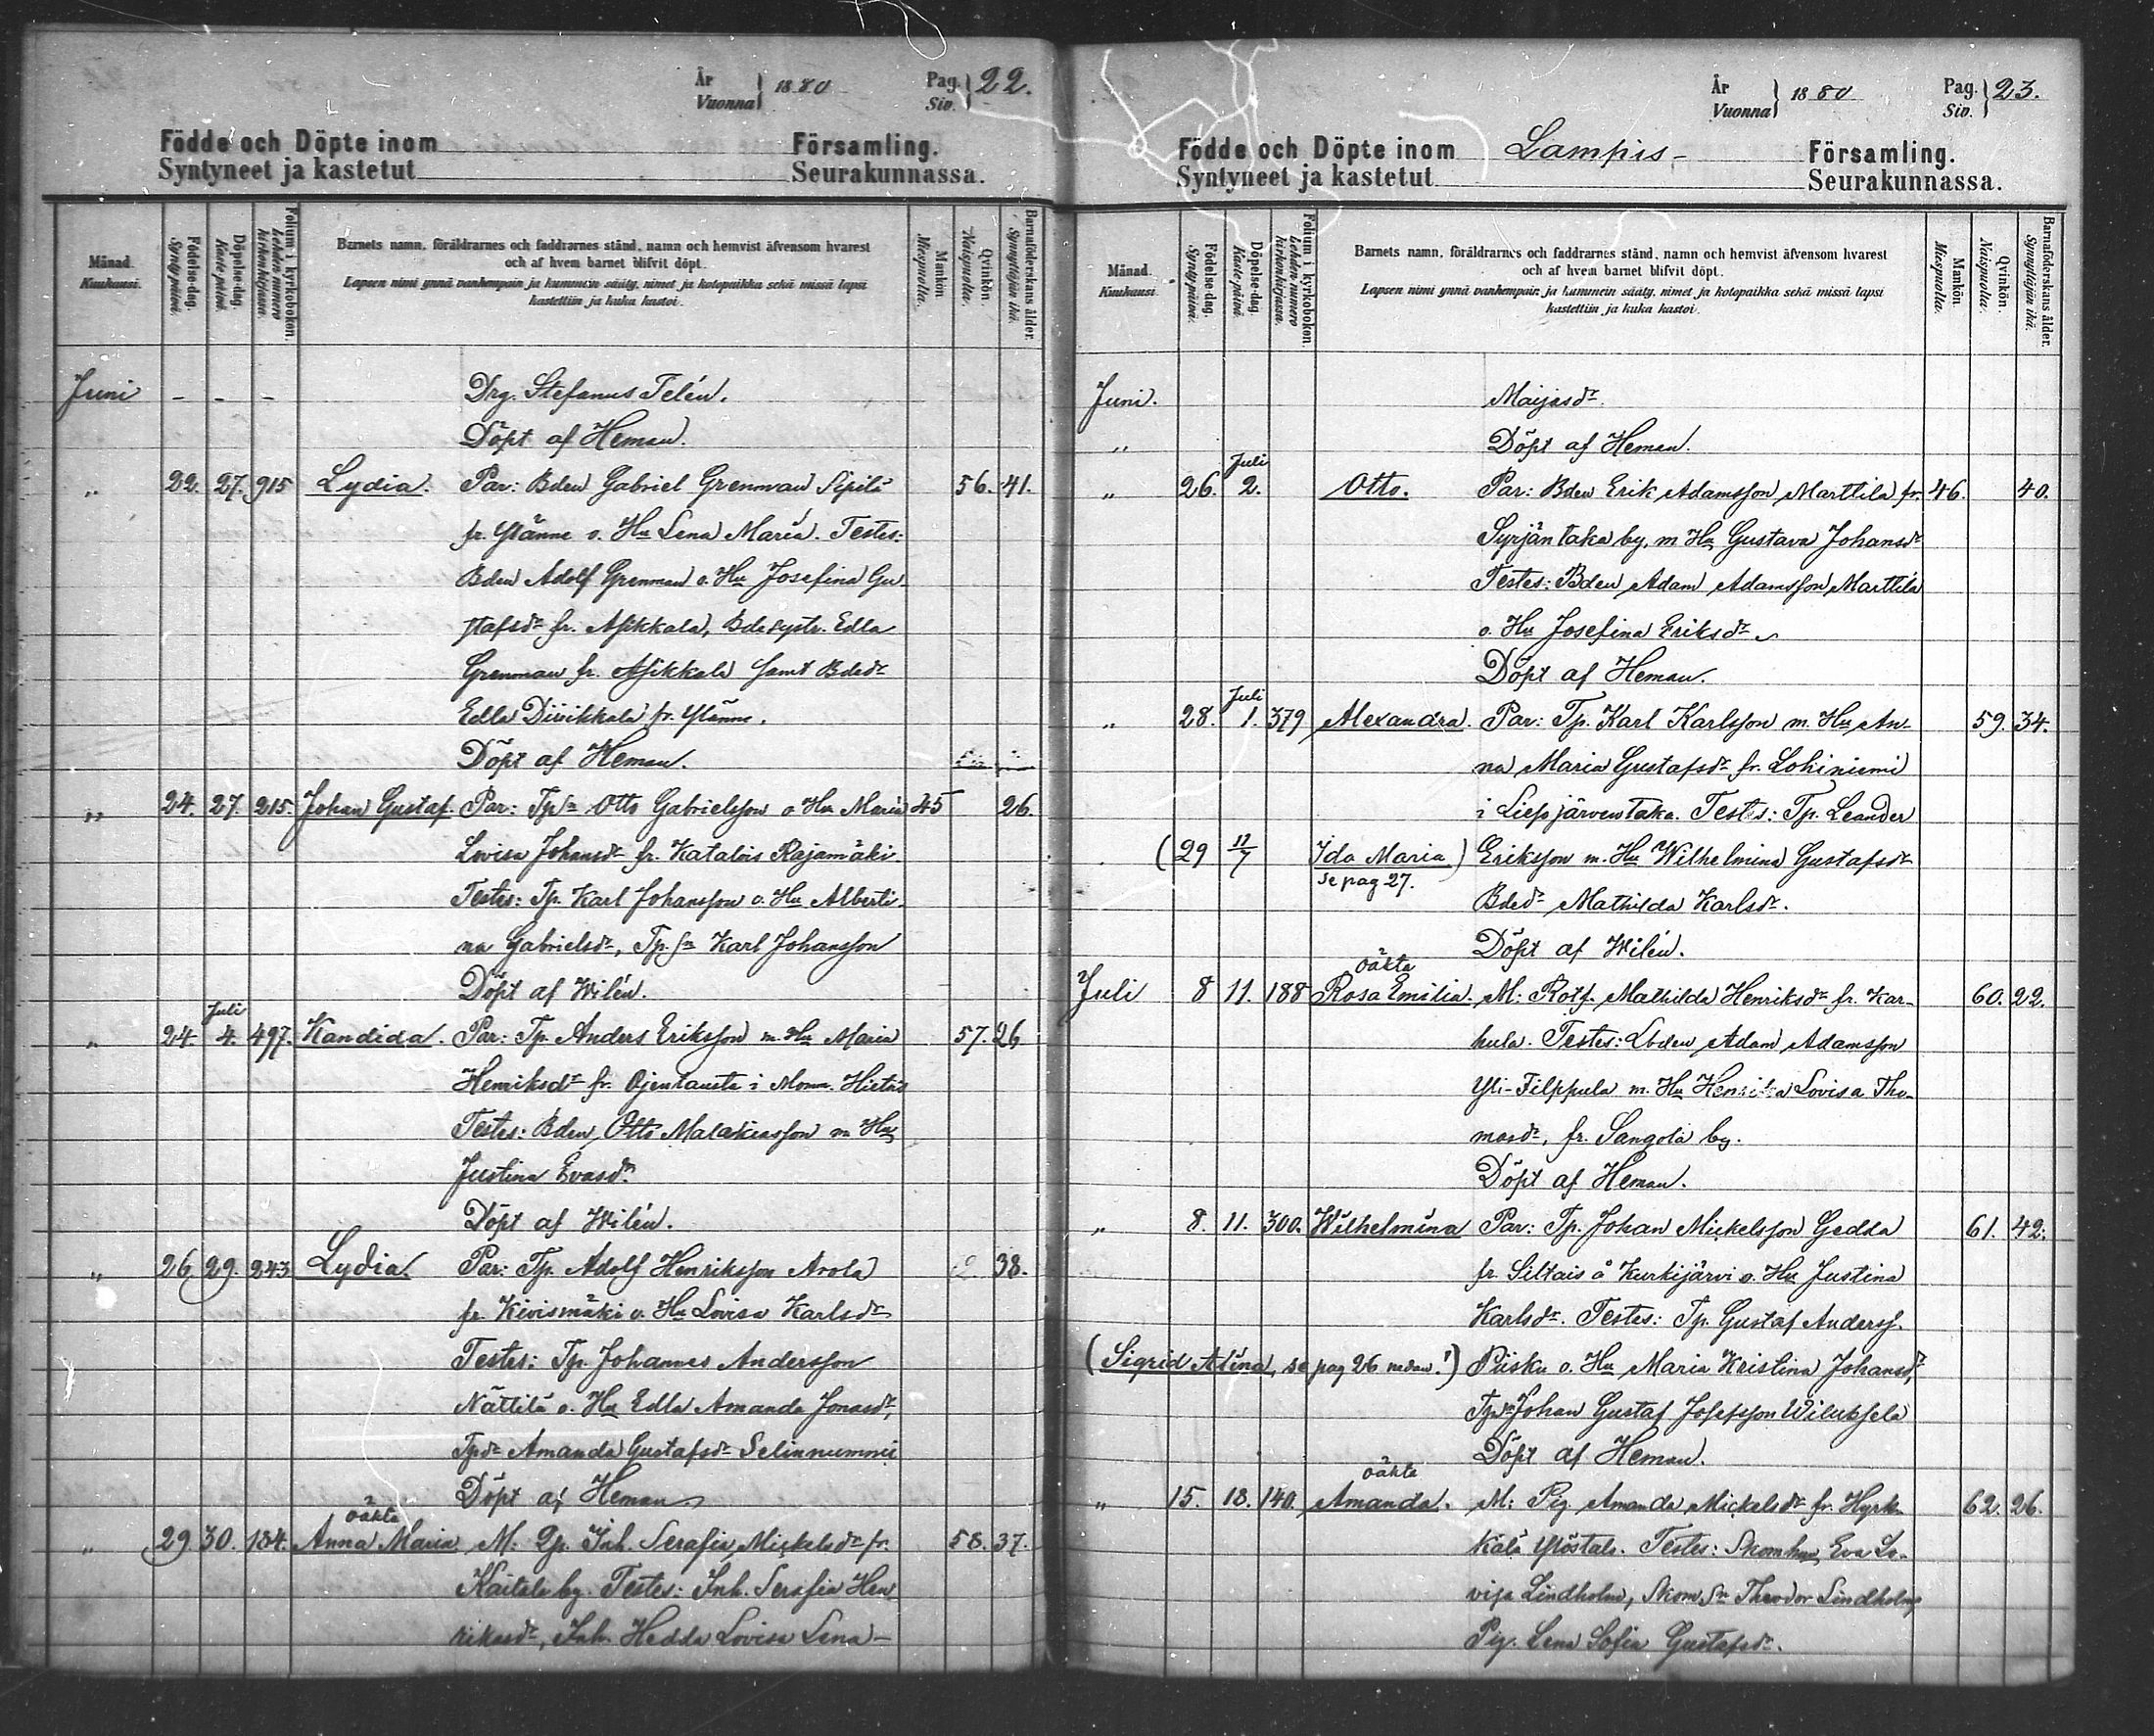 År 1880 Pag. 22.
Vuonna Siv.
Födde och Döpte inom Församling.
Syntyneet ja kastetut Seurakunnassa.
Månad. Kuukausi.
Födelse-dag. Syntypäivä.
Döpelse-dag. Kastepäivä.
Folium i kyrkoboken. Lehden numero kirkonkirjassa.
Barnets namn, föräldrarnes och faddrarnes stånd, namn och hemvist äfvensom hvarest
och af hvem barnet blifvit döpt.
Lapsen nimi ynnä vanhempain ja kummein sääty, nimet ja kotopaikka sekä missä lapsi
kastettiin ja kuka kastoi.
Mankön. Miespuolta.
Qvinkön. Naispuolta.
Barnaföderskans ålder. Synnyttäjän ikä.
Juni - - - Drg. Stefanus Telén.
Döpt af Heman.
" 22. 27. 915 Lydia. Par: Bden Gabriel Grenman Sipilä 56. 41.
fr. Ylänne o. Hu Lena Maria. Testes:
Bden Adolf Grenman o. Hu Josefina Gu-
stafsdr fr. Asikkala, Bdesystr. Edla
Grenman fr. Asikkala samt Bdedr
Edla fr. Ylänne.
Döpt af Heman.
" 24. 27. 215. Johan Gustaf. Par: Tpsn Otto Gabrielsson o Hu Maria 45 26.
Lovisa Johansdr fr. Katalois Rajamäki
Testes: Tp. Karl Johansson o. Hu Alberti-
na Gabrielsdr, Tp.sn Karl Johansson
Döpt af Wilén.
Juli
" 24. 4. 497. Kandida. Par: Tp. Anders Eriksson m. Hu Maria 57. 26
Henriksdr fr. Ojentausta i
Testes: Bden Otto Malakiasson m Hu
Justina Evasdr.
Döpt af Wilén.
" 26. 29. 243 Lydia. Par: Tp. Adolf Henriksson Arola 38.
fr. Kivismäki o. Hu Lovisa Karlsdr
Testes: Tp. Johannes Andersson
Nättilä o. Hu Edla Amanda Jonasdr,
Tpdr Amanda Gustafsdr Selinnummi
Döpt af Heman
oäkta
" 29 30. 184. Anna Maria M: Inh. Serafia Mickelsdr fr. 58. 37.
Kaitala by. Testes: Inh. Serafia Hen
riksdr, Inh. Hedda Lovisa Lena-
År 1880 Pag. 23.
Vuonna Siv.
Födde och Döpte inom Lampis- Församling.
Syntyneet ja kastetut Seurakunnassa.
Månad. Kuukausi.
Födelse-dag. Syntypäivä.
Döpelse-dag. Kastepäivä.
Folium i kyrkoboken. Lehden numero kirkonkirjassa.
Barnets namn, föräldrarnes och faddrarnes stånd, namn och hemvist äfvensom hvarest
och af hvem barnet blifvit döpt.
Lapsen nimi ynnä vanhempain ja kummein sääty, nimet ja kotopaikka sekä missä lapsi
kastettiin ja kuka kastoi.
Mankön. Miespuolta.
Qvinkön. Naispuolta.
Barnaföderskans ålder. Synnyttäjän ikä.
Juni. Maijasdr.
" Döpt af Heman.
Juli
" 26. 2. Otto. Par: Bden Erik Adamsson Marttila fr. 46. 40.
Syrjäntaka by, m Hu Gustava Johansdr
Testes: Bden Adam Adamsson Marttila
o. Hu Josefina Eriksdr
Döpt af Heman.
Juli
" 28. 1. 379 Alexandra. Par: Tp. Karl Karlsson m. Hu An- 59. 34.
na Maria Gustafsdr fr. Lohiniemi
i Liesojärventaka. Testes: Tp. Leander
(29 11/7 Ida Maria) Eriksson m. Hu Wilhelmina Gustafsdr
se pag 27. Bdedr Mathilda Karlsdr.
Döpt af Wilén.
oäkta
Juli 8 11. 188 Rosa Emilia. M: Rotf. Mathilda Henriksdr fr. Kar- 60. 22.
hula. Testes: Lbden Adam Adamsson
Yli-Filppula m. Hu Henrika Lovisa Tho-
masdr, fr. Sangola by.
Döpt af Heman.
" 8. 11. 300. Wilhelmina Par: Tp. Johan Mickelsson Gedda 61. 42.
fr. Siltais å Kurkijärvi o. Hu Justina
Karlsdr. Testes: Tp. Gustaf Anderss.
(Sigrid Alina, se pag 26 nedan!) Piisku o. Hu Maria Kristina Johansdr,
Tpsn Johan Gustaf Josefsson Wiluksela
Döpt af Heman.
oäkta
" 15. 18. 140. Amanda. M: Pig. Amanda Mickelsdr fr. Hyrk- 62. 26.
kälä Ylöstalo. Testes: Skomhu Eva Lo-
visa Lindholm, Skom.sn Theodor Lindholm
Pig. Lena Sofia Gustafsdr.